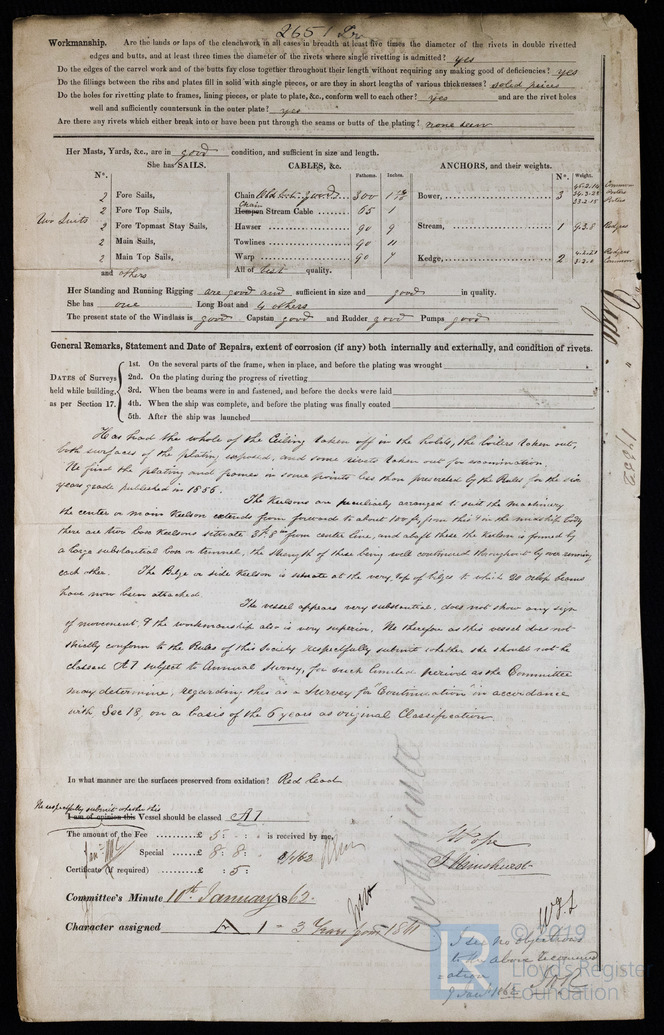 2651 Ir
Workmanship. Are the lands or laps of the clenchwork in all cases in breadth at least five times the diameter of the rivets in double rivetted
edges and butts, and at least three times the diameter of the rivets where single rivetting is admitted? yes
Do the edges of the carvel work and of the butts fay close together throughout their length without requiring any making good of deficiencies? yes
Do the fillings between the ribs and plates fill in solid with single pieces, or are they in short lengths of various thicknesses? solid pieces
Do the holes for rivetting plate to frames, lining pieces, or plate to plate, &c., conform well to each other? yes and are the rivet holes
well and sufficiently countersunk in the outer plate? yes
Are there any rivets which either break into or have been put through the seams or butts of the plating? none seen
Her Masts, Yards, &c., are in good condition, and sufficient in size and length.
She has SAILS. CABLES, &c. ANCHORS, and their weights.
N°. Fathoms. Inches. N°. Weight.
2 Fore Sails, Chain 300 Bower, 3
Two Suits 2 Fore Top Sails, Chain Hempen Stream Cable 65 1
2 Fore Topmast Stay Sails, Hawser 90 9 Stream, 1 9.3.8 Rodgers
2 Main Sails, Towlines 90 11
2 Main Top Sails, Warp 90 7 Kedge, 2
and others All of best quality.
Her Standing and Running Rigging are good and sufficient in size and good in quality.
She has one Long Boat and 4 others
The present state of the Windlass is good Capstan good and Rudder good Pumps good
General Remarks, Statement and Date of Repairs, extent of corrosion (if any) both internally and externally, and condition of rivets.
DATES of Surveys held while building, as per Section 17.
1st. On the several parts of the frame, when in place, and before the plating was wrought
2nd. On the plating during the progress of rivetting
3rd. When the beams were in and fastened, and before the decks were laid
4th. When the ship was complete, and before the plating was finally coated
5th. After the ship was launched
Has had the whole of the Ceiling taken off in the holds, the boilers taken out,
both surfaces of the plating exposed, and some rivets taken out for examination.
We find the plating and frames in some points less than prescribed by the Rules for the six
years grade published in 1855.
The Keelsons are peculiarly arranged to suit the machinery
the center or main Keelson extends from forward to about 100 ft, from this & in the midship body
there are two box Keelsons situate 3ft 8in from center line, and abaft these the Keelson is formed by
a large substantial box or tunnel, the strength of these being well continued throughout by over running
each other. The Bilge or side Keelson is situate at the very top of bilges to which 20 orlop beams
have now been attached.
The vessel appears very substantial, does not show any sign
of movement, & the workmanship also is very superior. We therefore as this vessel does not
strictly conform to the Rules of this Society respectfully submit whether she should not be
classed A1 subject to Annual Survey, for such limited period as the Committee
may determine, regarding this as a Survey for "Continuation" in accordance
with Sec 18, on a basis of the 6 years as original Classification.
In what manner are the surfaces preserved from oxidation? Red lead
We respectfully submit whether this
I am of opinion this Vessel should be classed A1
The amount of the Fee £ 5 : : is received by me,
Special £ 8 : 8 : 
Certificate (if required) £ : 5 :
W Pope
Committee's Minute 10th January 1862.
Character assigned A 1 = 3 Years from 1861
I see no objections
to the above recommend
ation
9 Jany 1862
© 2019
Lloyd's Register
Foundation
LR